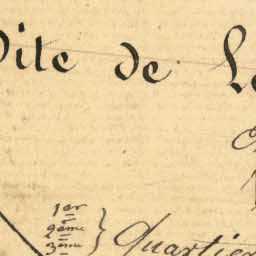 Dite de
1er
2ème
3ème
Quartier